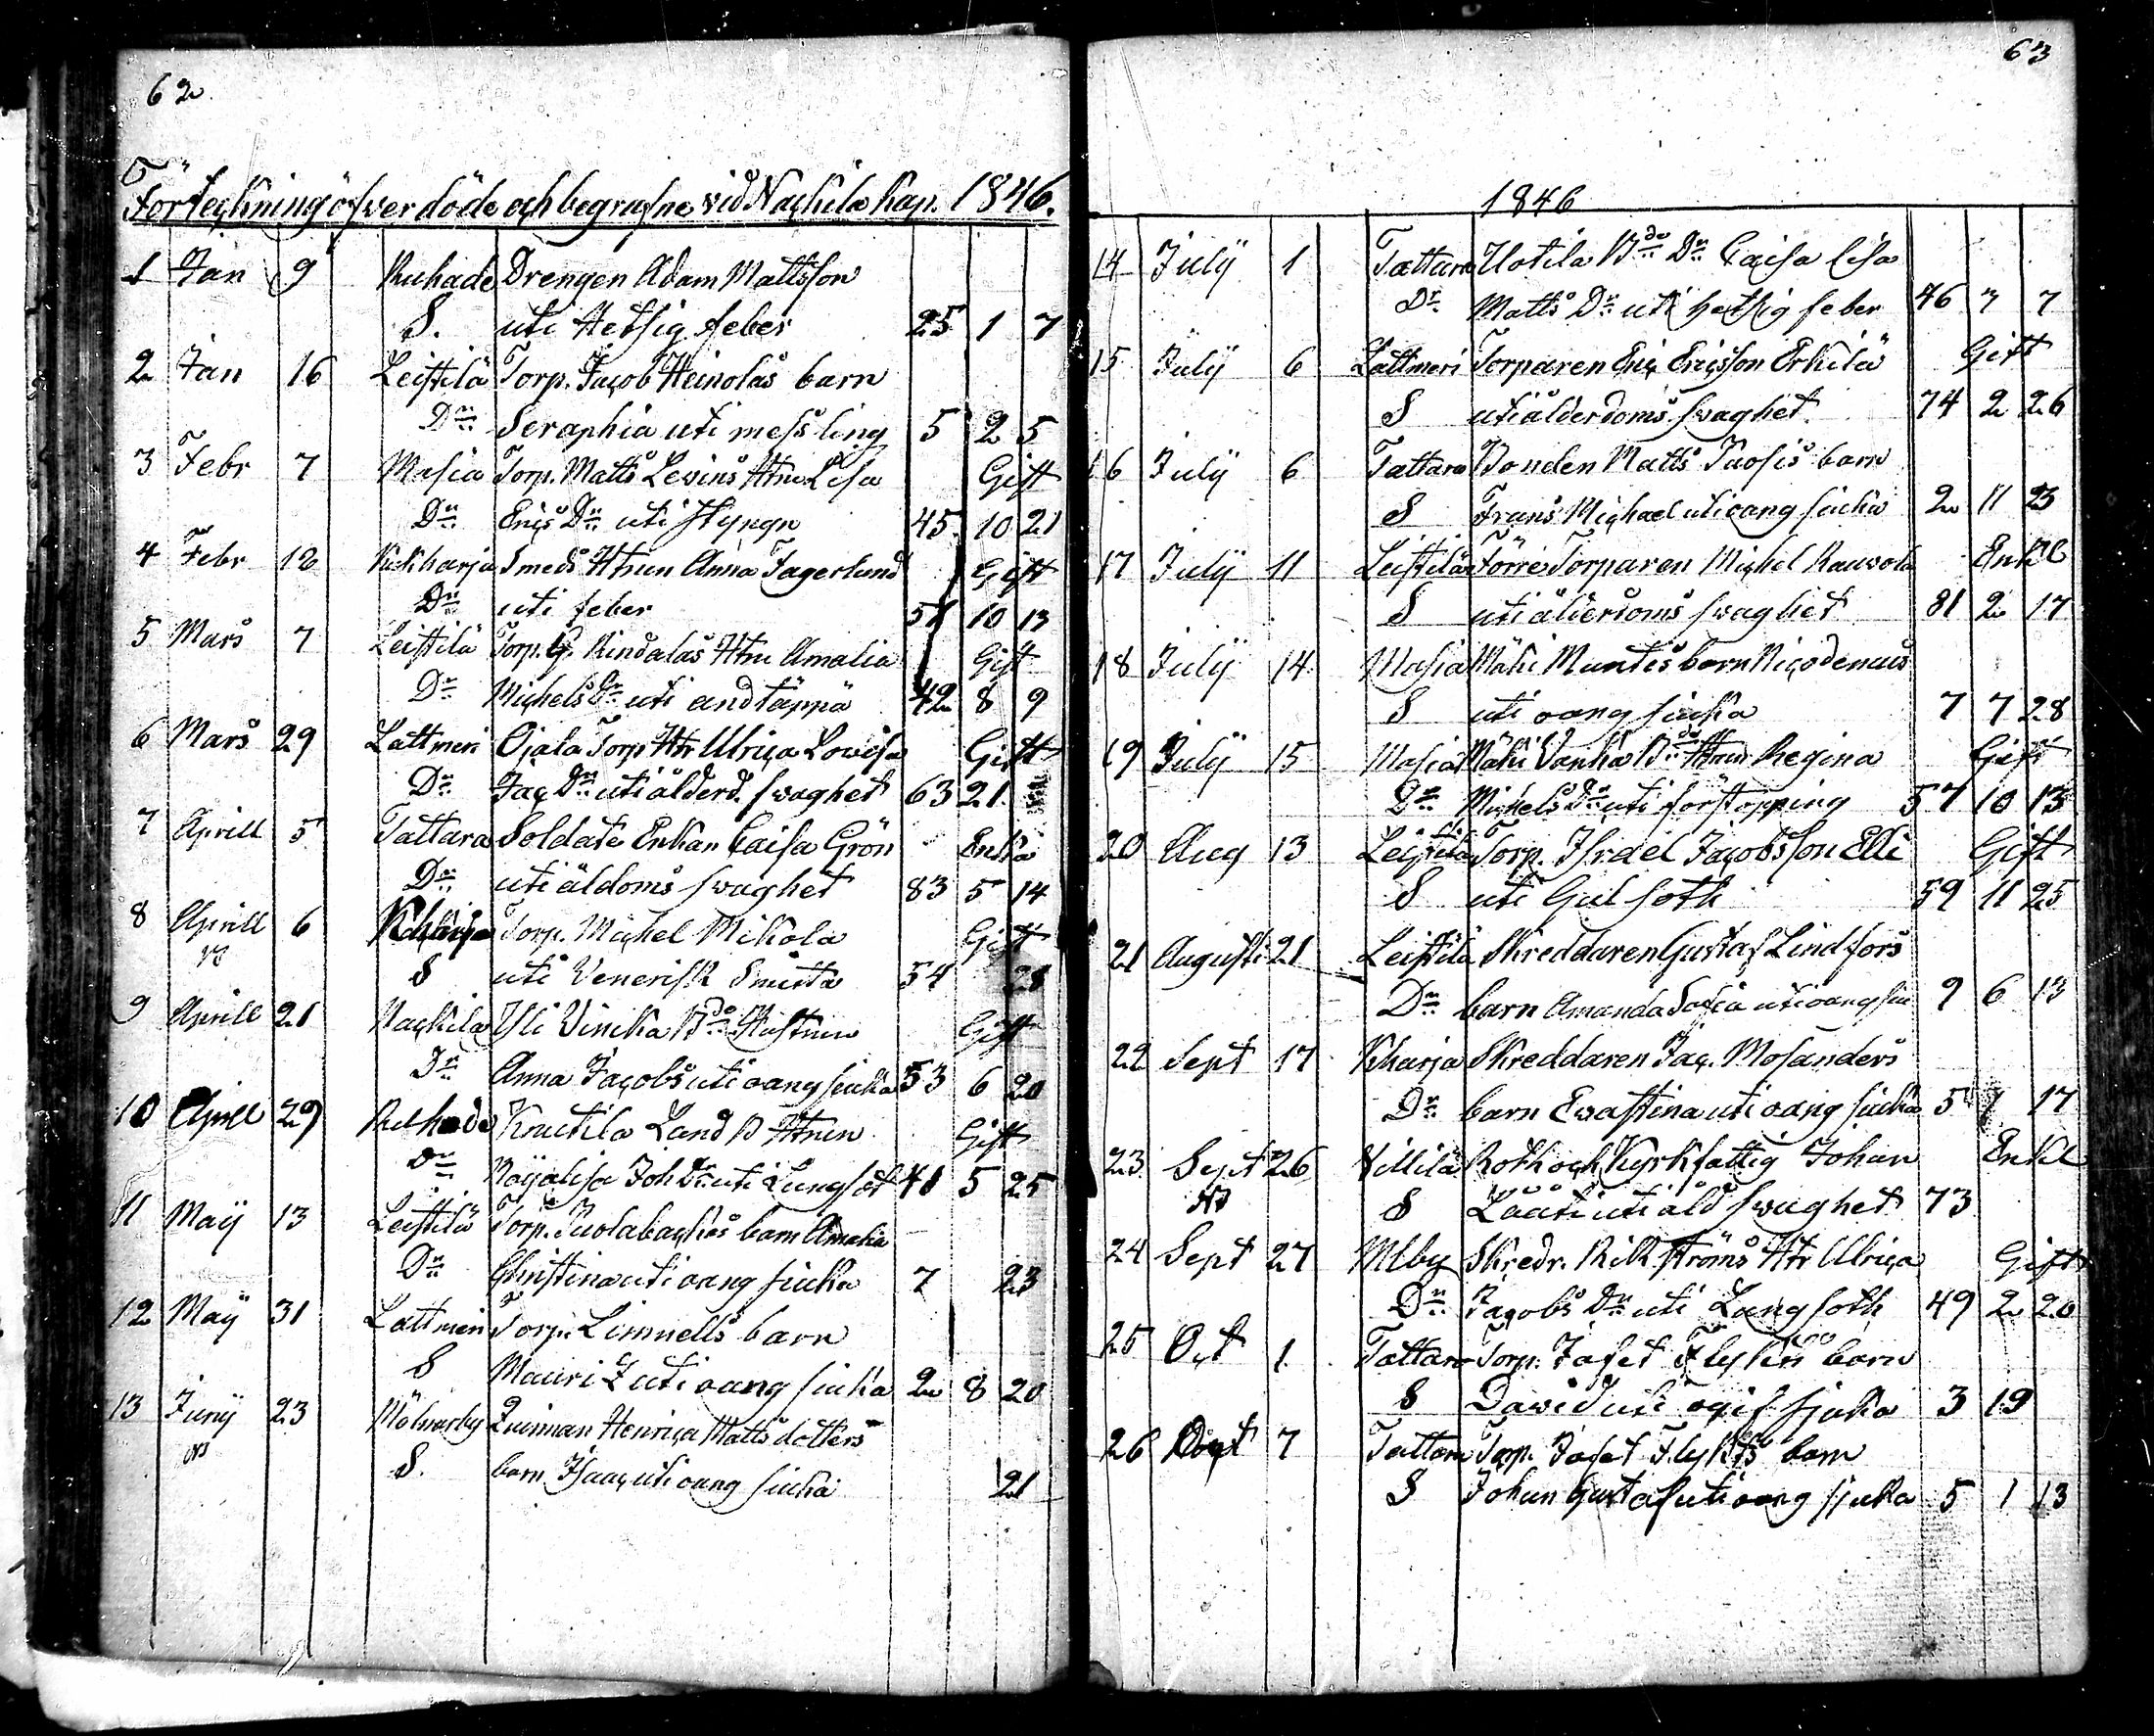 62.
Förteckning öfver döde och begrafne vid Nackila Kap. 1846.
1 Jan 9 Ruhade Drengen Adam Mattsson
S. uti Hetsig feber 25 1 7
2 Jan 16 Leistilä Torp. Jacob Heinolas barn
Dr Seraphia uti messling 5 2 5
3 Febr 7 Masia Torp. Matts Levins Htru Lisa Gift
Dr Erics Dr uti Styngn 45 10 21
4 Febr 12 Kukharja Smeds Htrun Anna Fagerlund Gift
Dr uti feber 51 10 13
5 Mars 7 Leistilä Torp. G. Rindalas Htru Amalia Gift
Dr Michels Dr uti andtäppa 42 8 9
6 Mars 29 Lattmeri Ojala Torp Htr Ulrica Lowisa Gift
Dr Jac Dr uti ålderd. swaghet 63 21
7 Aprill 5 Tattara Soldate Enkan Caisa Grön Enka
Dr uti äldoms swaghet 83 5 14
8 Aprill 6 Kharja Torp. Michel Mikola Gift
S uti Venerisk Smitta 54 28
9 Aprill 21 Nackila Yli Vinika Bdo Hustrun Gift
Dr Anna Jacobs uti oang siuka 53 6 20
10 Aprill 29 Ruhade Knutila Land B Htrun Gift
Dr Majalisa Joh Dr uti Lungsot 41 5 25
11 Maÿ 13 Leistilä Torp. Juolabackas barn Amalia
Dr Christina uti oang siuka 7 23
12 Maÿ 31 Lattmeri Torp. Limnells barn
S Mauritz uti oang siuka 2 8 20
13 Junÿ 23 Mölnarby Quinnan Henrica Matts dotters
S. barn Isaac uti oang siuka 21
63
1846
14 Julÿ 1 Tattara Uotila Bdo Dr Caisa Lisa
Dr Matts Dr uti Hetsig feber 46 7 7
15 Julÿ 6 Lattmeri Torparen Eric Ericsson Erkilä Gift
S uti ålderdoms swaghet 74 2 26
16 Julÿ 6 Tattara Bonden Matts Juosis barn
S Frans Michael uti oang siuka 2 11 23
17 Julÿ 11 Leistilä Förre Torparen Michel Rauvola Enkl
S uti ålderdoms swaghet 81 2 17
18 Julÿ 14 Masia Mäki Muntis barn Nicodemus
S uti oang siuka 7 7 28
19 Julÿ 15 Masia Mäki Vanha Bdo Htrun Regina Gift
Dr Michels Dr uti förstopping 57 10 13
20 Aug 13 Leistilä Torp. Israel Jacobsson Elli Gift
S uti Gul soth 59 11 25
21 Augusti 21 Leistilä Skreddaren Gustaf Lindfors
Dr barn Amanda Sofia uti oang siu 9 6 13
22 Sept 17 Kharja Skreddaren Jac. Mosanders
Dr barn Ewastina uti oang siuka 5 7 17
23 Sept 26 Villilä Roth och Kyrkfattig Johan Enkl
S Lääti uti åld swaghet 73
24 Sept 27 Mlby Skredr. Rikströms Htr Ulrica Gift
Dr Jacobs Dr uti Lungsoth 49 2 20
25 Oct 1 Tattara Torp. Jafet Flykts barn
S Dawid uti ogif sjuka 3 19
26 Oct 7 Tattara Torp. Jafet Flykts barn
S Johan Gustaf uti oang sjuka 5 1 13